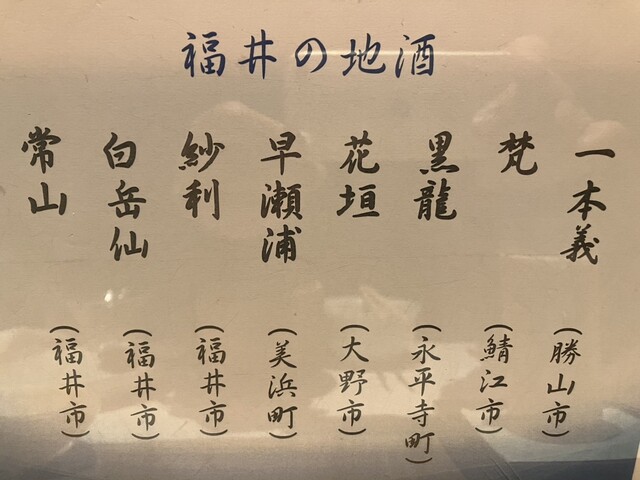 福井の地酒
一本義
(勝山市)
梵
(鯖江市)
黒龍
(永平寺町)
花垣
(大野市)
早瀬浦
(美浜町)
紗利
(福井市)
白岳仙
(福井市)
常山
(福井市)